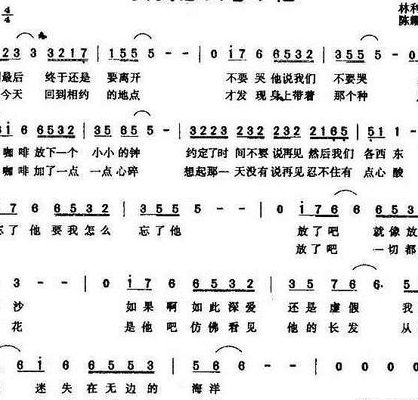 4/4 林利
陈耀
223 3 3217 | 155 5 - | 0 i7 6 6532 | 35 5 - -
最后 终于还是 要离开 不要 哭他说我们 不要哭
今天 回到相约 的地点 才发 现身上带着 那个种
6i 6 6532 | 35 65 5 - | 3223 232 232 2165 | 51 1 -
咖啡 放下一个 小小的钟 约定了时 间不要说再见 然后我们 各西东
咖啡 加了一点 一点心碎 想起那一 天没有说再见 忍不住有 点心酸
i7 6 6532 | 35 5 - - | 0 i7 6 653
忘了 他 要我怎么 忘了他 放了吧 就像放
放了吧 一切都
3 - - | 0 i 7 6 6532 | 35 76 6 - | 0 5
沙 如果啊 如此深爱 还是虚假 我
花 是他吧 仿佛看见 他的长发 从
6 i 6 6553 | 56 6 - -
迷失在无边的 海洋